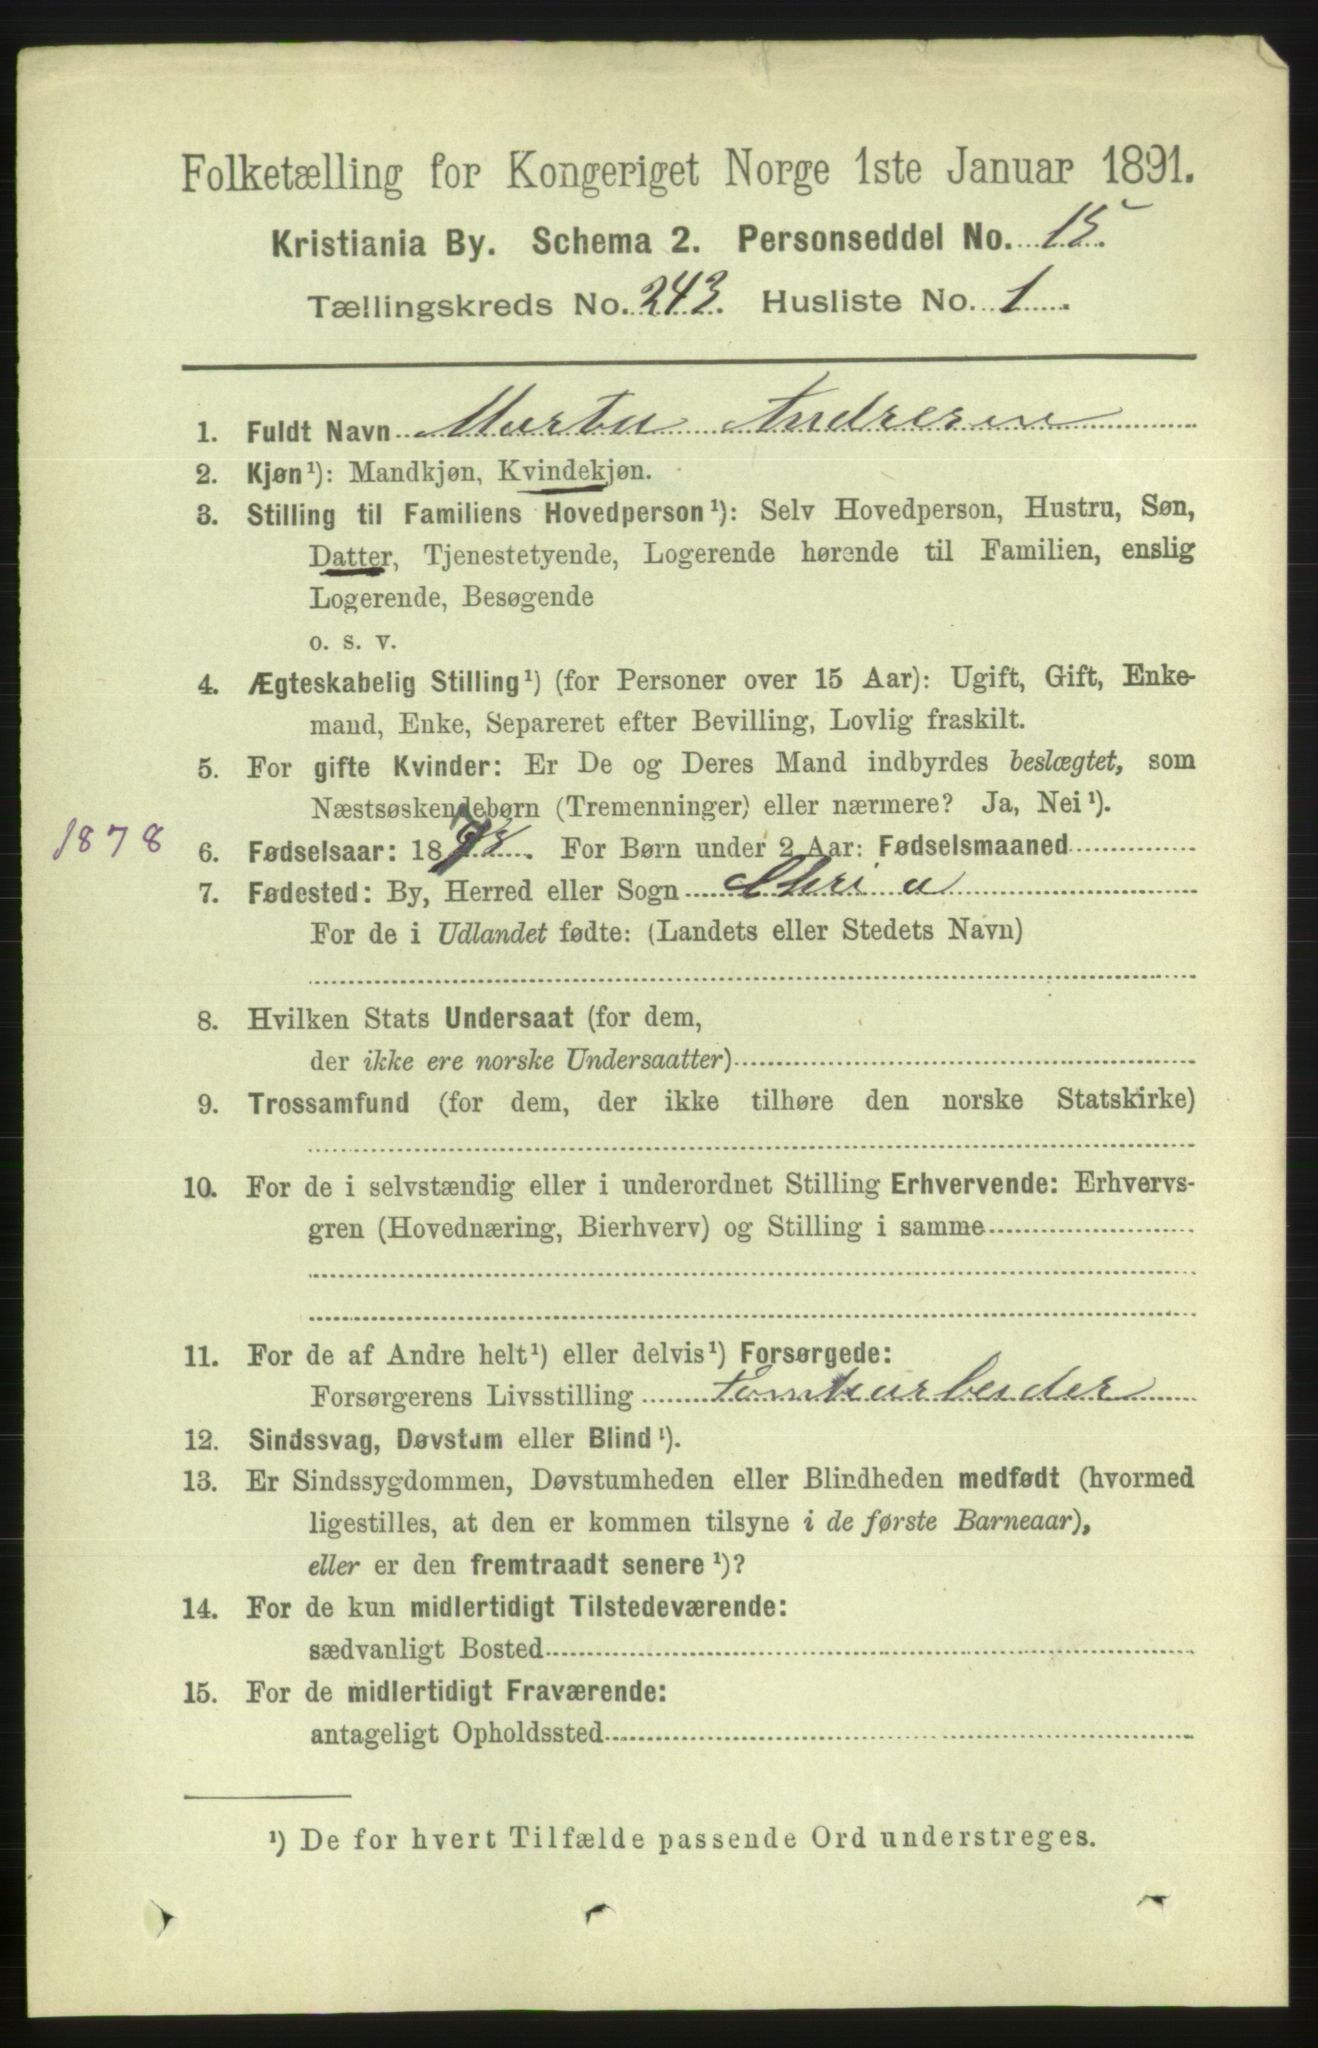 Folketælling for Kongeriget Norge 1ste Januar 1891.
Kristiania By. Schema 2. Personseddel No. 15.
Tællingskreds No. 243. Husliste No. 1.
1. Fuldt Navn Marta Andresen
2. Kjøn¹): Mandkjøn, Kvindekjøn.
3. Stilling til Familiens Hovedperson¹): Selv Hovedperson, Hustru, Søn,
Datter, Tjenestetyende, Logerende hørende til Familien, enslig
Logerende, Besøgende
o. s. v.
4. Ægteskabelig Stilling¹) (for Personer over 15 Aar): Ugift, Gift, Enke-
mand, Enke, Separeret efter Bevilling, Lovlig fraskilt.
5. For gifte Kvinder: Er De og Deres Mand indbyrdes beslægtet, som
Næstsøskendebørn (Tremenninger) eller nærmere? Ja, Nei¹).
1878
6. Fødselsaar: 1878. For Børn under 2 Aar: Fødselsmaaned
7. Fødested: By, Herred eller Sogn Chri a
For de i Udlandet fødte: (Landets eller Stedets Navn)
8. Hvilken Stats Undersaat (for dem,
der ikke ere norske Undersaatter)
9. Trossamfund (for dem, der ikke tilhøre den norske Statskirke)
10. For de i selvstændig eller i underordnet Stilling Erhvervende: Erhvervs-
gren (Hovednæring, Bierhverv) og Stilling i samme
11. For de af Andre helt¹) eller delvis¹) Forsørgede:
Forsørgerens Livsstilling Tomtearbeider
12. Sindssvag, Døvstum eller Blind¹).
13. Er Sindssygdommen, Døvstumheden eller Blindheden medfødt (hvormed
ligestilles, at den er kommen tilsyne i de første Barneaar),
eller er den fremtraadt senere¹)?
14. For de kun midlertidigt Tilstedeværende:
sædvanligt Bosted
15. For de midlertidigt Fraværende:
antageligt Opholdssted
¹) De for hvert Tilfælde passende Ord understreges.